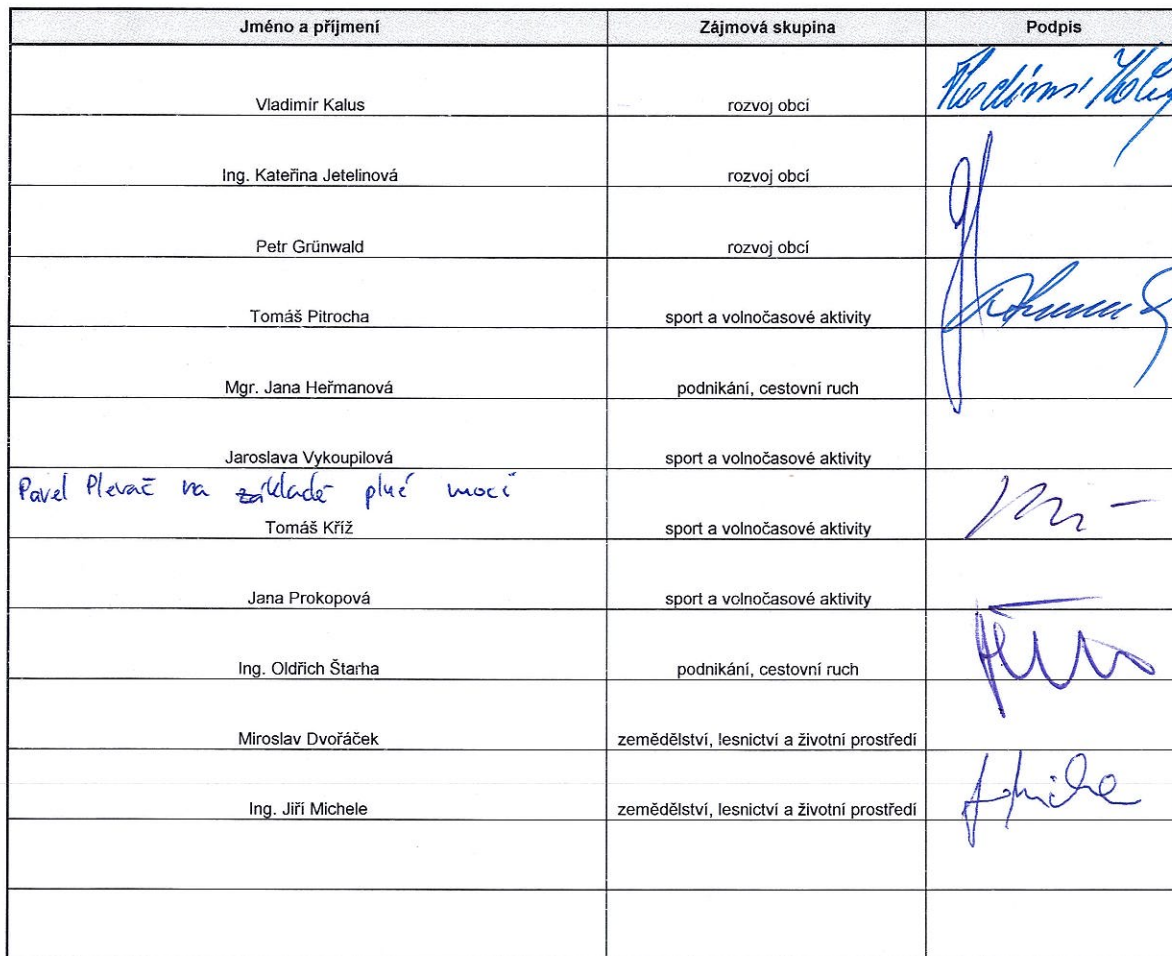 Jméno a příjmení Zájmová skupina Podpis
Vladimír Kalus rozvoj obcí
Ing. Kateřina Jetelinová rozvoj obcí
Petr Grünwald rozvoj obcí
Tomáš Pitrocha sport a volnočasové aktivity
Mgr. Jana Heřmanová podnikání, cestovní ruch
Jaroslava Vykoupilová sport a volnočasové aktivity
Pavel Plevač na základě plné moci
Tomáš Kříž sport a volnočasové aktivity
Jana Prokopová sport a volnočasové aktivity
Ing. Oldřich Štarha podnikání, cestovní ruch
Miroslav Dvořáček zemědělství, lesnictví a životní prostředí
Ing. Jiří Michele zemědělství, lesnictví a životní prostředí